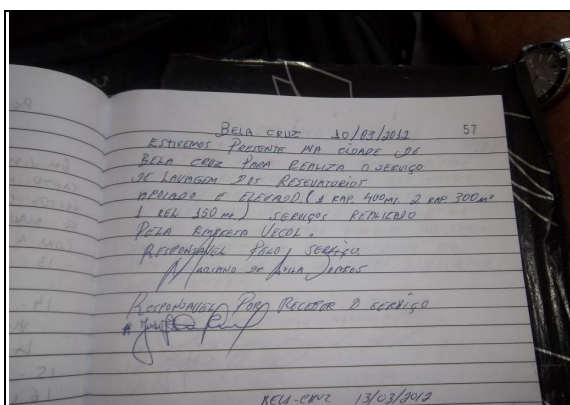 BELA CRUZ 10/03/2012 57
ESTIVEMOS PRESENTE NA CIDADE DE
BELA CRUZ PARA REALIZA O SERVIÇO
DE LAVAGEM DOS RESEVATORIOS
APOIADO E ELEVADO (1 RAP. 400m³. 2 RAP 300m³
1 REL 150 m³.) SERVIÇOS REPLICADO
PELA EMPRESA VECOL.
RESPONSAVEL PELO SERVIÇO.
MARIANO DE AVILA SOARES
RESPONSAVEL POR RECEBER O SERVIÇO
BELA-CRUZ 13/03/2012